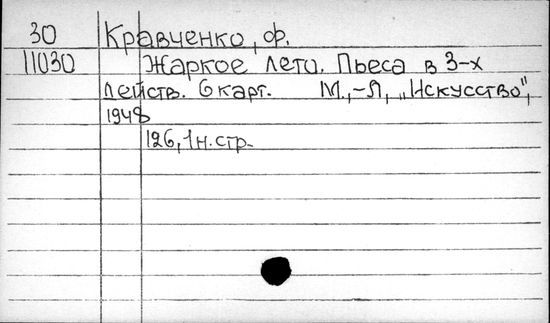 30 Кравченко, Ф.
11030 Жаркое лето. Пьеса в 3-х
действ. 6 карт. М.,-Л, „Искусство",
1948
126, 1 н. стр.